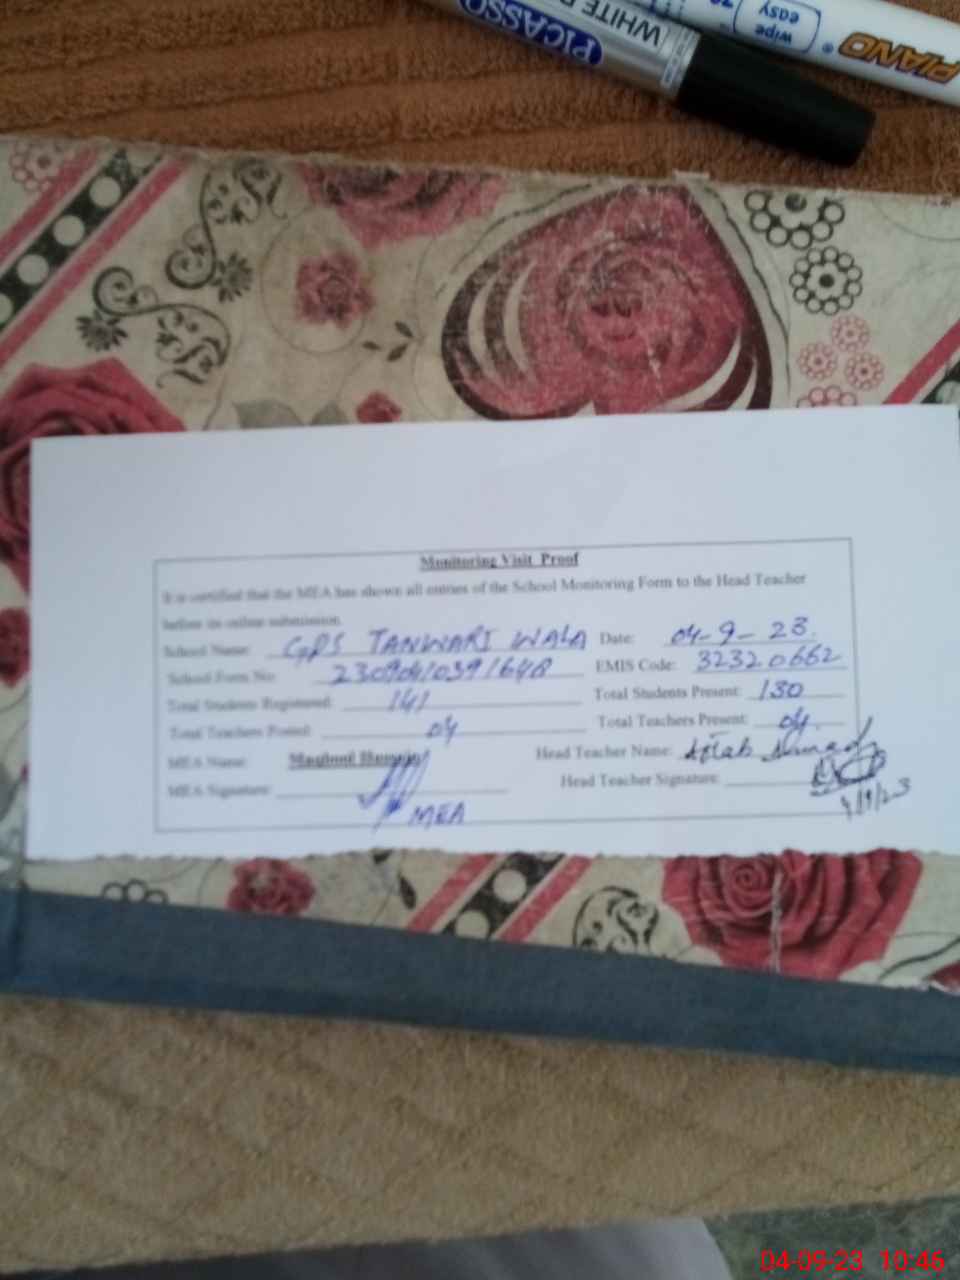 PICASSO
WHITE
wipe
easy
70
PIANO ®
Monitoring Visit Proof
It is certified that the MEA has shown all entries of the School Monitoring Form to the Head Teacher
before its online submission.
School Name: GPS TANWARI WALA Date: 04-9-23.
School Form No: EMIS Code: 32320662
Total Students Registered: 141 Total Students Present: 130
Total Teachers Posted: 04 Total Teachers Present: 04.
MEA Name: Maqbool Hussain Head Teacher Name: Aftab Ahmad
MEA Signature: Head Teacher Signature:
MEA 4/9/23
04-09-23 10:46